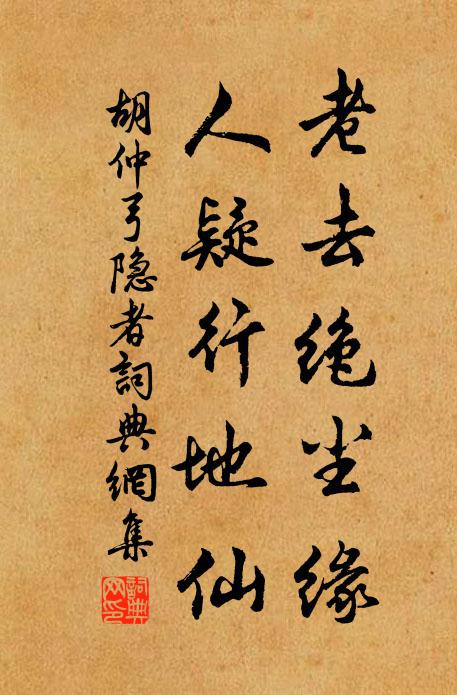 老去绝尘缘
人疑行地仙
胡仲弓隐者詞典網集
詞典网印